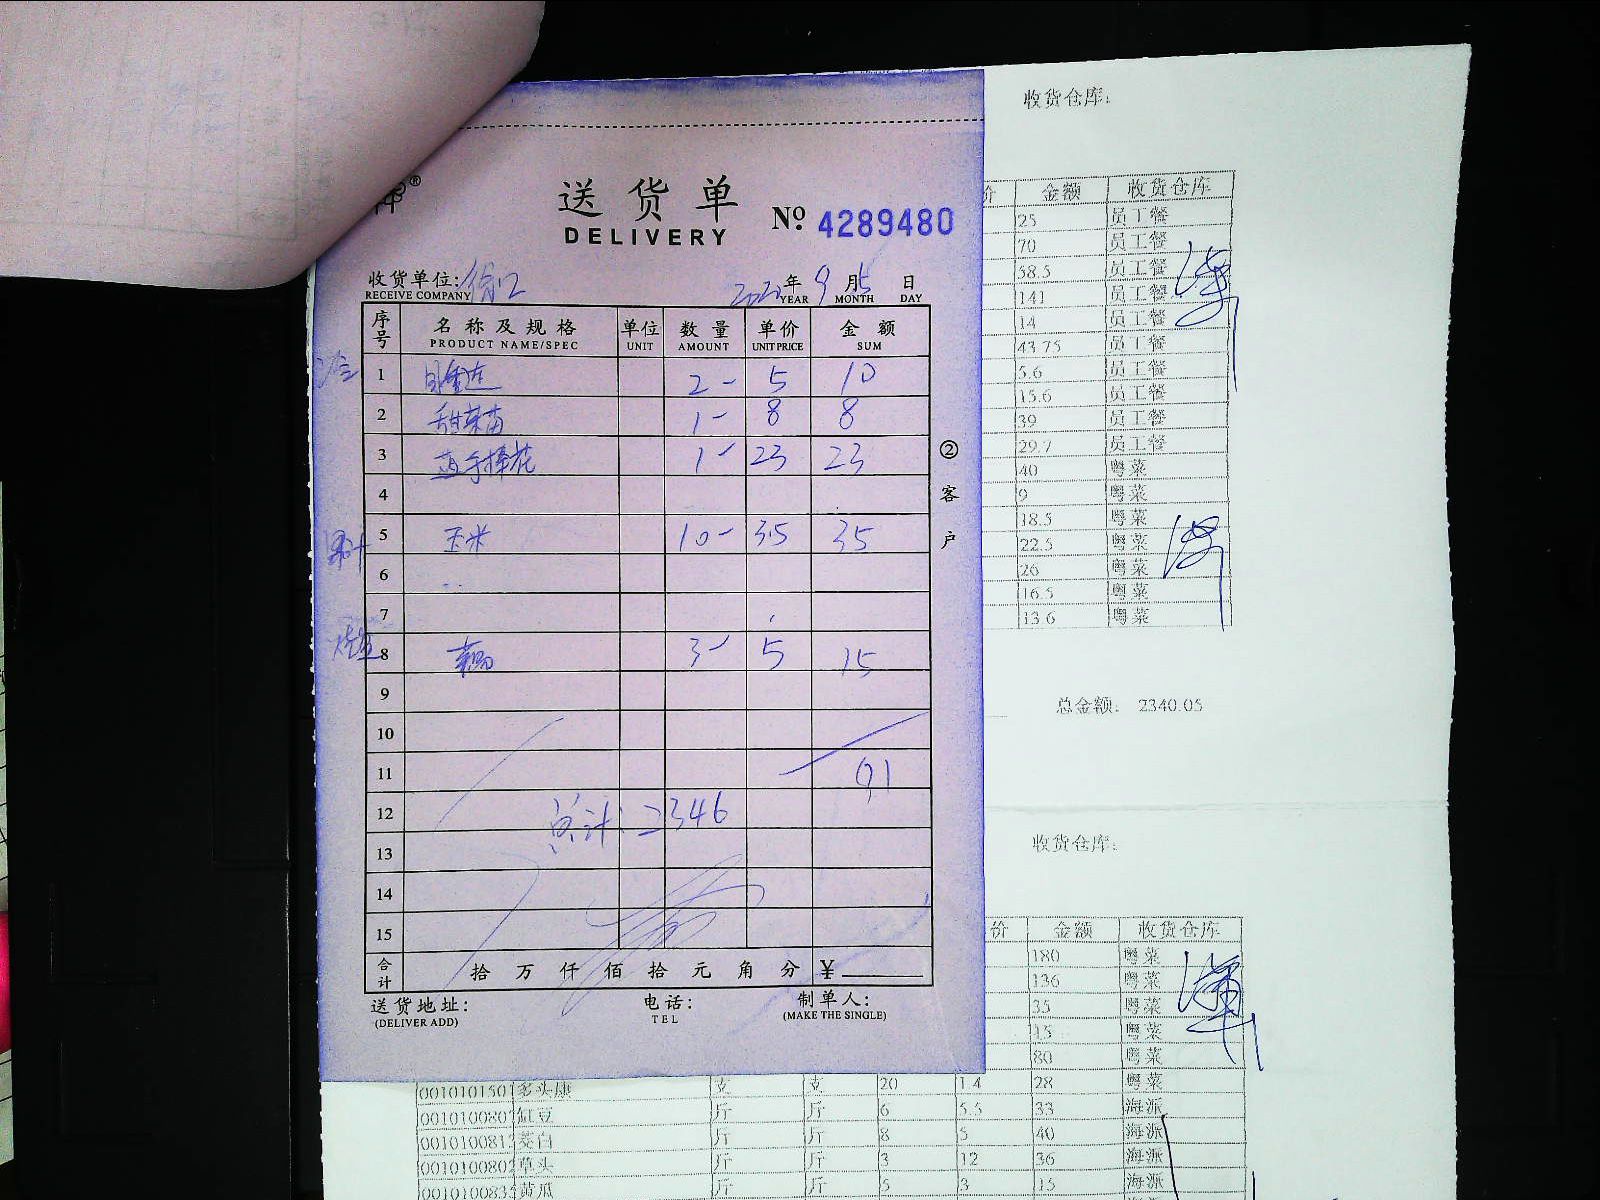 送货单
DELIVERY
No. 4289480
收货单位:
RECEIVE COMPANY
年 9 月 5 日
YEAR MONTH DAY
序号 名称及规格 单位 数量 单价 金额
PRODUCT NAME/SPEC UNIT AMOUNT UNIT PRICE SUM
1 2- 5 10
2 甜菜苗 1- 8 8
3 1- 23 23
4
5 玉米 10- 3.5 35
6
7
8 3- 5 15
9
10
11 91
12 总计:2346
13
14
15
合计 拾 万 仟 佰 拾 元 角 分 ¥
送货地址: 电话: 制单人:
(DELIVER ADD) TEL (MAKE THE SINGLE)
②客户
收货仓库:
价 金额 收货仓库
25 员工餐
70 员工餐
58.5 员工餐
141 员工餐
14 员工餐
43.75 员工餐
5.6 员工餐
15.6 员工餐
39 员工餐
29.7 员工餐
40 粤菜
9 粤菜
18.5 粤菜
22.5 粤菜
26 粤菜
16.5 粤菜
13.6 粤菜
总金额: 2340.05
收货仓库:
价 金额 收货仓库
180 粤菜
136 粤菜
35 粤菜
15 粤菜
80 粤菜
001010150 多头康 支 支 20 1.4 28 粤菜
001010080 缸豆 斤 斤 6 5.5 33 海派
001010081 茭白 斤 斤 8 5 40 海派
001010080 草头 斤 斤 3 12 36 海派
001010083 黄瓜 斤 斤 5 3 15 海派